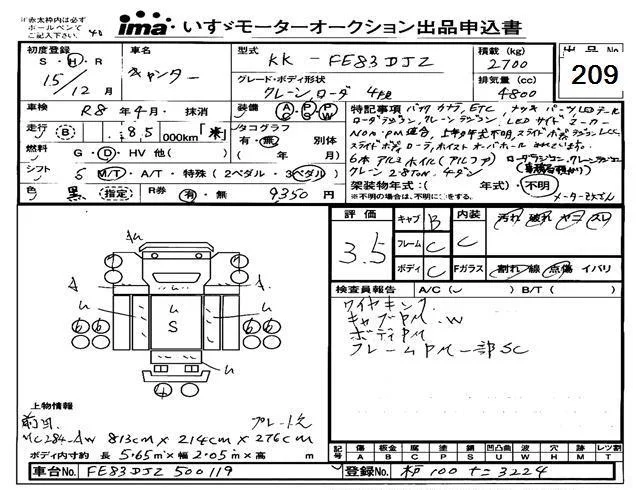 ※赤太枠内は必ず
ボールペンで
ご記入下さい。
ima いすゞモーターオークション出品申込書
初度登録
S・H・R
15/12月
車名
キャンター
型式
KK-FE83DJZ
グレード・ボディ形状
クレーン,ローダ 4段
積載 (kg)
2700
排気量 (cc)
4800
出品No
209
車検
R8年4月・抹消
装備
AC PS PW
走行
B
8,5
000km
「米」
タコグラフ
有・無
別体
(年 月)
燃料
G・D・HV 他( )
シフト
5
M/T・A/T・特殊(2ペダル・3ペダル)
色
黒
指定
R券
有・無
9350円
特記事項
バックカメラ,ETC
ローダラジコン,クレーンラジコン,LEDサイドマーカー
NOX・PM適合,
6本アルミホイル(アルコア)
ローダラジコン,クレーンラジコン
クレーン2.8TON,4ダン
架装物年式:( 年式)・不明
※不明の場合は、不明に○をする。
評価
3.5
キャブ B
フレーム C
ボディ C
内装 C
Fガラス
汚れ 破れ ヤコ スレ
割れ・線 点傷・イバリ
検査員報告
A/C( ) B/T( )
ワイヤキンク
キャブPM.W
ボディPM
フレームPM一部SC
AW
A
A
U
U
U
S
上物情報
前回
プレート欠
MC284-AW 813cm×214cm×276cm
ボディ内寸約 長5.65m×幅2.05m×高 m
記号
傷 板金 腐 塗 損 凹凸曲 波 穴 跡 レツ割
A B C P S U W H M T
車台No. FE83DJZ 500119
登録No. 100 3224